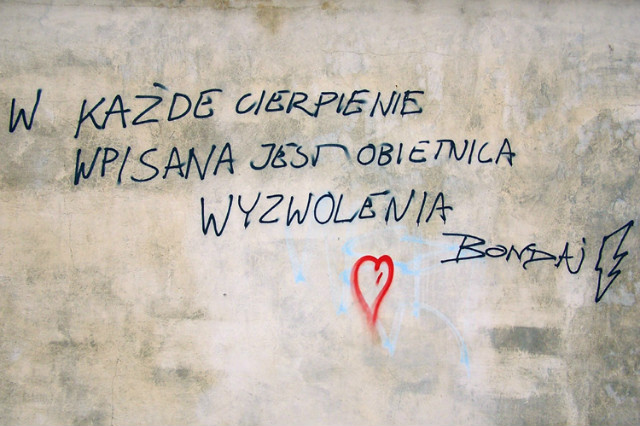 W KAŻDE CIERPIENIE
WPISANA JEST OBIETNICA
WYZWOLENIA
BONDAJ